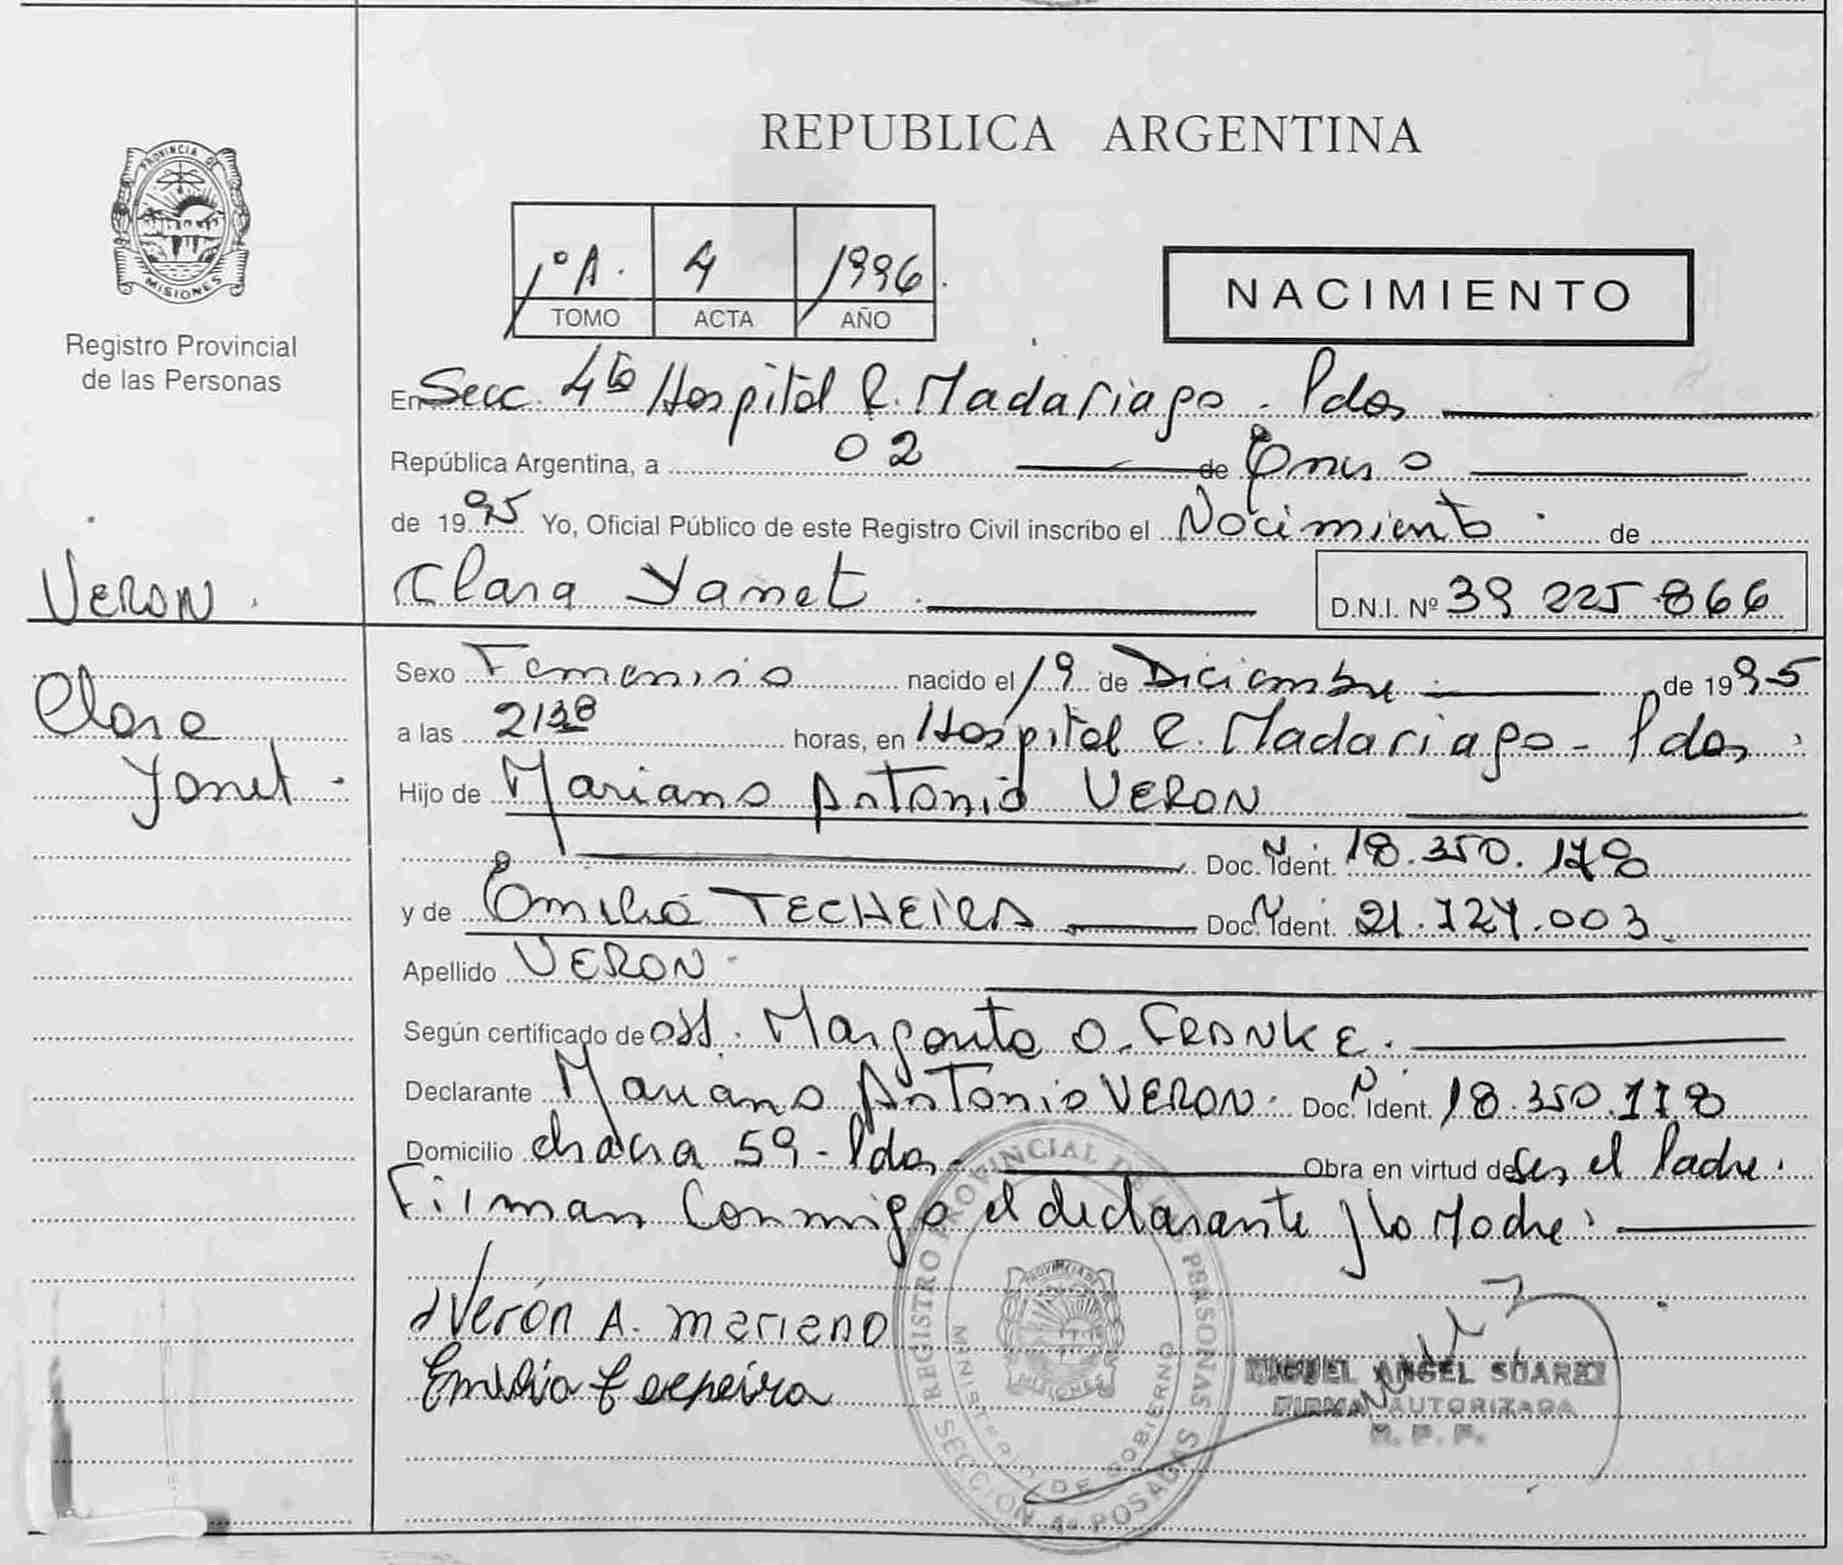 REPUBLICA ARGENTINA
PROVINCIA DE
MISIONES
Registro Provincial
de las Personas
1º A. 4 1996.
TOMO ACTA AÑO
NACIMIENTO
En Secc. 4ta Hospital R. Madariaga - Pdas
República Argentina, a 02 de Enero
de 1995 Yo, Oficial Público de este Registro Civil inscribo el Nacimiento de
VERON.
Clara Yanet D.N.I. Nº 39 225 866
Clara
Yanet -
Sexo Femenino nacido el 19 de Diciembre de 1995
a las 2138 horas, en Hospital R. Madariaga - Pdas
Hijo de Mariano Antonio VERON
Doc. Ident. 18.350.178
y de Emilia TECHEIRA Doc. Ident. 21.724.003
Apellido VERON
Según certificado de Margarita O. FRANKE.
Declarante Mariano Antonio VERON. Doc. Ident. 18.350.178
Domicilio chacra 59 - Pdas Obra en virtud de ser el Padre.
Firman Conmigo el declarante y la Madre
Verón A. mariano
Emilia
REGISTRO PROVINCIAL DE LAS PERSONAS
MINISTERIO DE GOBIERNO
PROVINCIA DE
MISIONES
SECCION 4ª POSADAS
MIGUEL ANGEL SUAREZ
FIRMA AUTORIZADA
R. P. P.